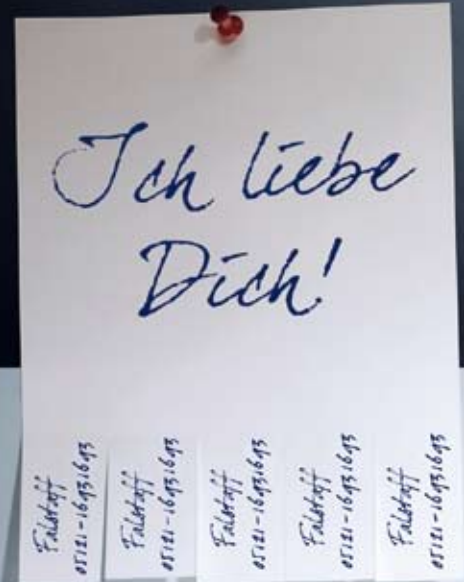 Ich liebe
Dich!
Falstaff
05121-16931693
Falstaff
05121-16931693
Falstaff
05121-16931693
Falstaff
05121-16931693
Falstaff
05121-16931693